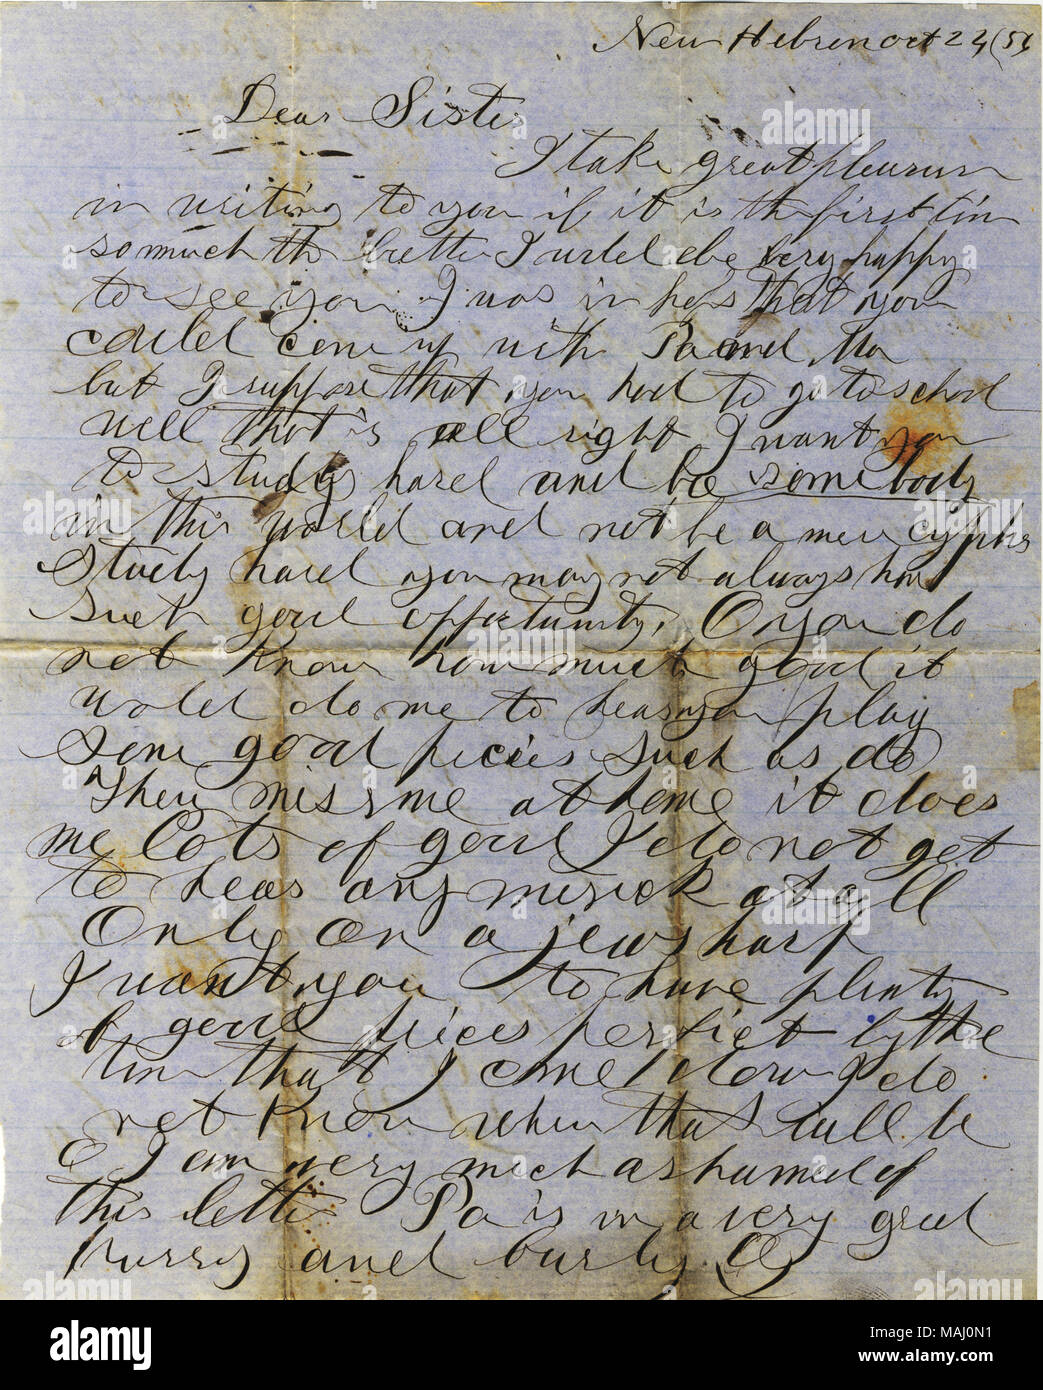 New Hebron Oct 24 (5
Dear Sister
I take great pleasure
in writing to you if it is the first tim
so much the better I wold be very happy
to see you. I was in hops that you
could come up with Pa and Ma
but I suppose that you had to go to school
well that is all right I want you
to study hard and be somebody
in this world and not be a mere cypher
Study hard you may not always have
such good opportunity, O you do
not know how much good it
wold do me to hear you play
some good pecies such as do
They miss me at home it does
me lots of good I do not get
to hear any musick at all
Only on a jews harp
I want you to have plenty
of good pieces perfect by the
time that I come down I do
not know when that will be
I am very much ashamed of
this letter Pa is in a very great
hurry and burly
alamy
alamy stock photo
MAJ0N1
www.alamy.com